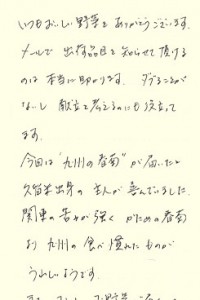 いつもおいしい野菜をありがとうございます。
メールで出荷品目を知らせて頂ける
のは本当に助かります。ダブることが
ないし献立を考えるのにも役立って
ます。
今回は"九州の春菊"が届いたと
久留米出身の主人が喜んでいました。
関東の苦みが強くかための春菊
より九州の食べ慣れたものが
うれしいようです。